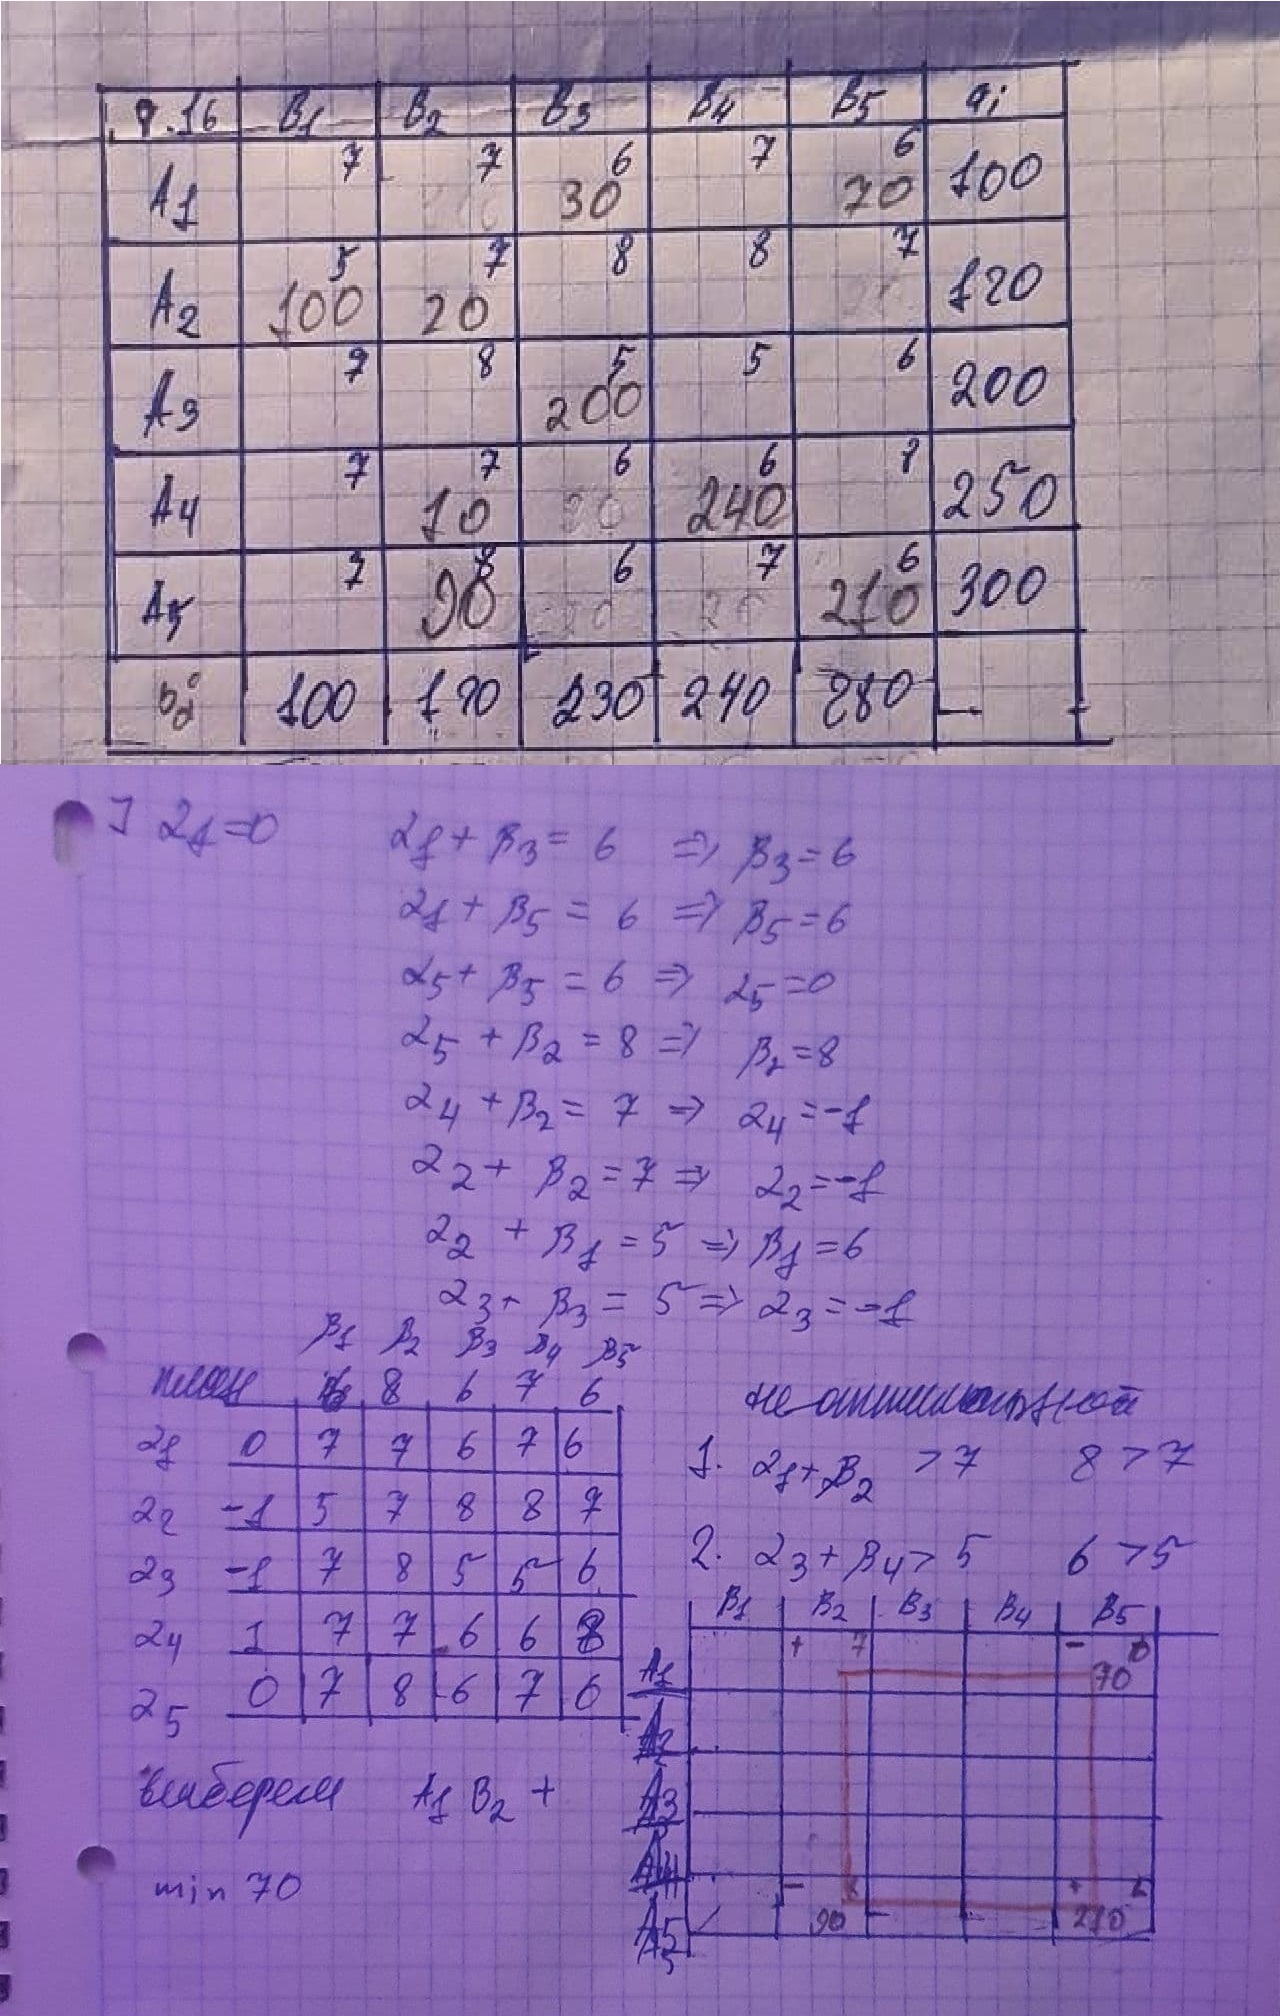 B1 B2 B3 B4 B5 ai
A1 7 7 6 30 7 6 70 100
A2 5 100 7 20 8 8 7 120
A3 7 8 5 200 5 6 200
A4 7 7 10 6 6 240 250
A5 7 8 90 6 7 6 210 300
bj 100 120 230 240 280 —
] α1=0 α1 + β3 = 6 => β3 = 6
α1 + β5 = 6 => β5 = 6
α5 + β5 = 6 => α5 = 0
α5 + β2 = 8 => β2 = 8
α4 + β2 = 7 => α4 = -1
α2 + β2 = 7 => α2 = -1
α2 + β1 = 5 => β1 = 6
α3 + β3 = 5 => α3 = -1
β1 β2 β3 β4 β5
план 8 6 7 6
α1 0 7 7 6 7 6
α2 -1 5 7 8 8 7
α3 -1 7 8 5 5 6
α4 1 7 7 6 6 8
α5 0 7 8 6 7 6
не оптимальной
1. α1 + β2 > 7 8 > 7
2. α3 + β4 > 5 6 > 5
выберем A1 B2 +
min 70
B1 B2 B3 B4 B5
A1 + 7 - 70
A2
A3
A4
A5 - 90 + 210